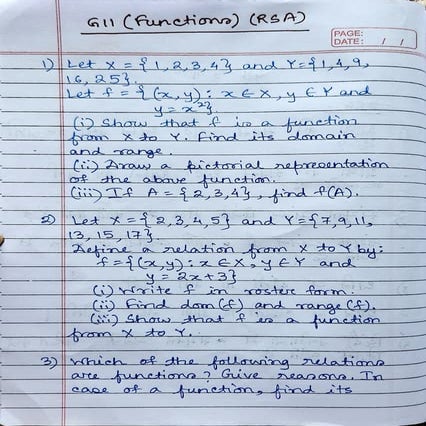 G11 (Functions) (RSA)
PAGE:
DATE: / /
1) Let X = {1,2,3,4} and Y={1,4,9,
16,25}.
Let f = {(x,y): x∈X, y∈Y and
y = x²}
(i) Show that f is a function
from X to Y. Find its domain
and range.
(ii) Draw a pictorial representation
of the above function.
(iii) If A = {2,3,4}, find f(A).
2) Let X = {2,3,4,5} and Y={7,9,11,
13,15,17}.
Define a relation from X to Y by:
f={(x,y): x∈X, y∈Y and
y = 2x+3}
(i) Write f in roster form.
(ii) Find dom(f) and range(f).
(iii) Show that f is a function
from X to Y.
3) Which of the following relations
are functions? Give reasons. In
case of a function, find its